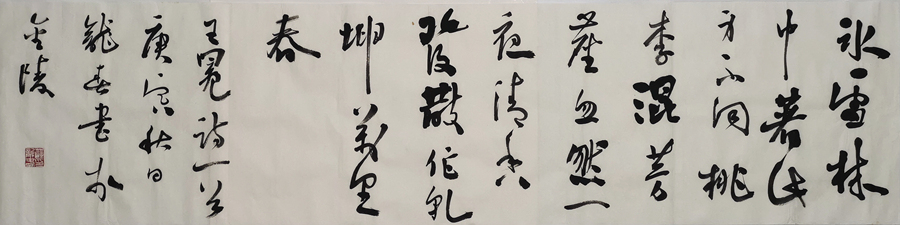 冰雪林
中著此
身不同桃
李混芳
塵忽然一
夜清香
發散作乾
坤萬里
春
王冕詩一首
庚寅秋日
龍書於
金陵